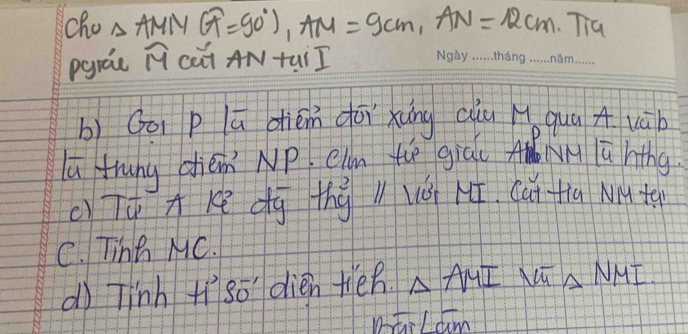 Cho Δ AMN (Â = 90°), AM = 9cm, AN = 12cm. Tia
pgiác M̂ cắt AN tại I
Ngày ......tháng ......năm......
b) Gọi P là điểm đối xứng của M qua A và b
là trung điểm NP. Clm tứ giác NM là hthg.
c) Từ A kẻ đg thg // với MI. Cắt tia NM tại
C. Tính MC.
d) Tính tỉ số diện tích. Δ AMI và Δ NMI.
Bài Làm